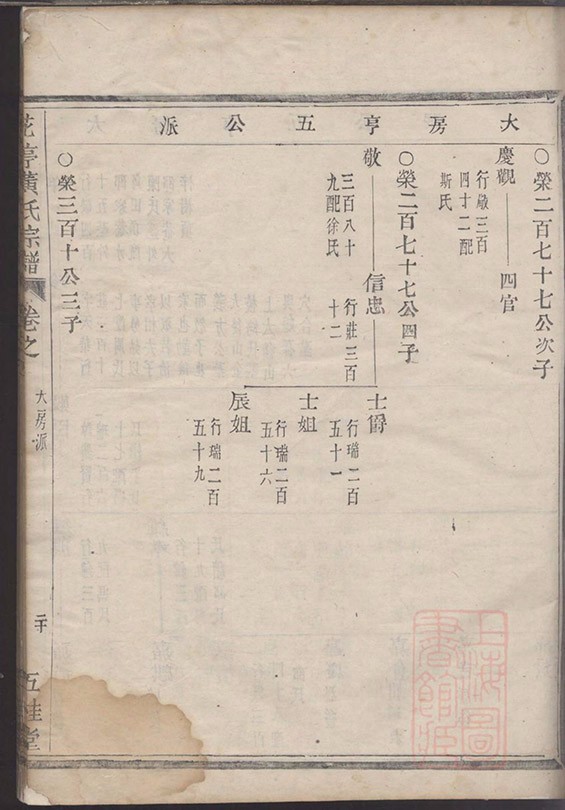 大房亨五公派
○榮二百七十七公次子
慶觀
行敬三百
四十二配
斯氏
四官
○榮二百七十七公四子
敬
三百八十
九配徐氏
信忠
行莊三百
十二
士爵
行瑞二百
五十一
士姐
行瑞二百
五十六
辰姐
行瑞二百
五十九
○榮三百十公三子
花亭黃氏宗譜
卷之
大房派
二十
五桂堂
上海圖書館藏